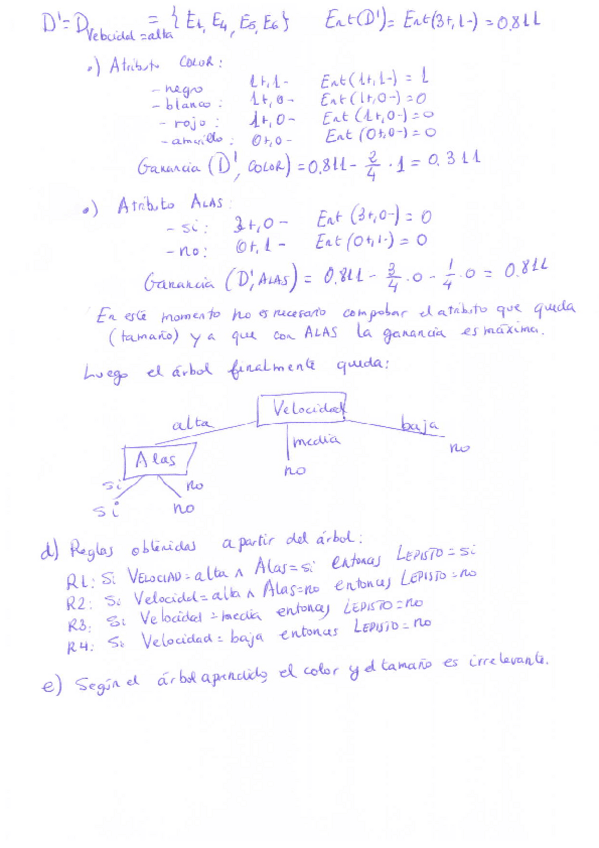 D'=D Velocidad=alta = {E1, E4, E5, E6} Ent(D')=Ent(3+,1-)=0.811
•) Atributo COLOR:
- negro 1+,1- Ent(1+,1-)=1
- blanco: 1+,0- Ent(1+,0-)=0
- rojo: 1+,0- Ent(1+,0-)=0
- amarillo: 0+,0- Ent(0+,0-)=0
Ganancia (D', COLOR)=0.811-2/4·1=0.311
•) Atributo ALAS:
- si: 3+,0- Ent(3+,0-)=0
- no: 0+,1- Ent(0+,1-)=0
Ganancia (D', ALAS)=0.811-3/4·0-1/4·0=0.811
En este momento no es necesario comprobar el atributo que queda
(tamaño) ya que con ALAS la ganancia es máxima.
Luego el árbol finalmente queda:
Velocidad
alta media baja
Alas no no
si no
si no
d) Reglas obtenidas a partir del árbol:
R1: Si VELOCIAD=alta ∧ Alas=si entonces LEPISTO=si
R2: Si Velocidad=alta ∧ Alas=no entonces LEPISTO=no
R3: Si Velocidad=media entonces LEPISTO=no
R4: Si Velocidad=baja entonces LEPISTO=no
e) Según el árbol aprendido, el color y el tamaño es irrelevante.